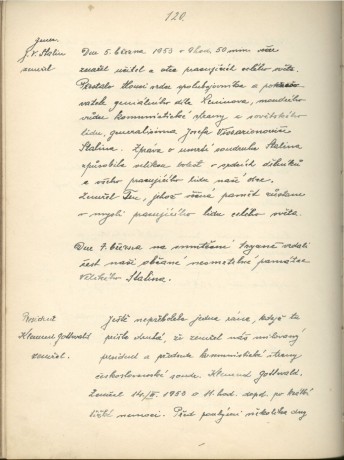 120.
gener.
J. V. Stalin
zemřel
Dne 5. března 1953 v 9 hod. 50 min. večer
zemřel učitel a otec pracujících celého světa.
Přestalo tlouci srdce spolubojovníka a pokračo-
vatele geniálního díla Leninova, moudrého
vůdce komunistické strany a sovětského
lidu, generalissima Josefa Vissarionoviče
Stalina. Zpráva o úmrtí soudruha Stalina
způsobila velikou bolest v srdcích dělníků
a všeho pracujícího lidu naší obce.
Zemřel Ten, jehož věčná paměť zůstane
v mysli pracujícího lidu celého světa.
Dne 9. března na smuteční vzdali
čest naši občané nesmrtelné památce
Velikého Stalina.
President
Klement Gottwald
zemřel.
Ještě nepřebolela jedna rána, když tu
přišla druhá, že zemřel náš milovaný
president a předseda komunistické strany
československé soudr. Klement Gottwald.
Zemřel 14./III. 1953 o 11. hod. dopol. po krátké
těžké nemoci. Před několika dny